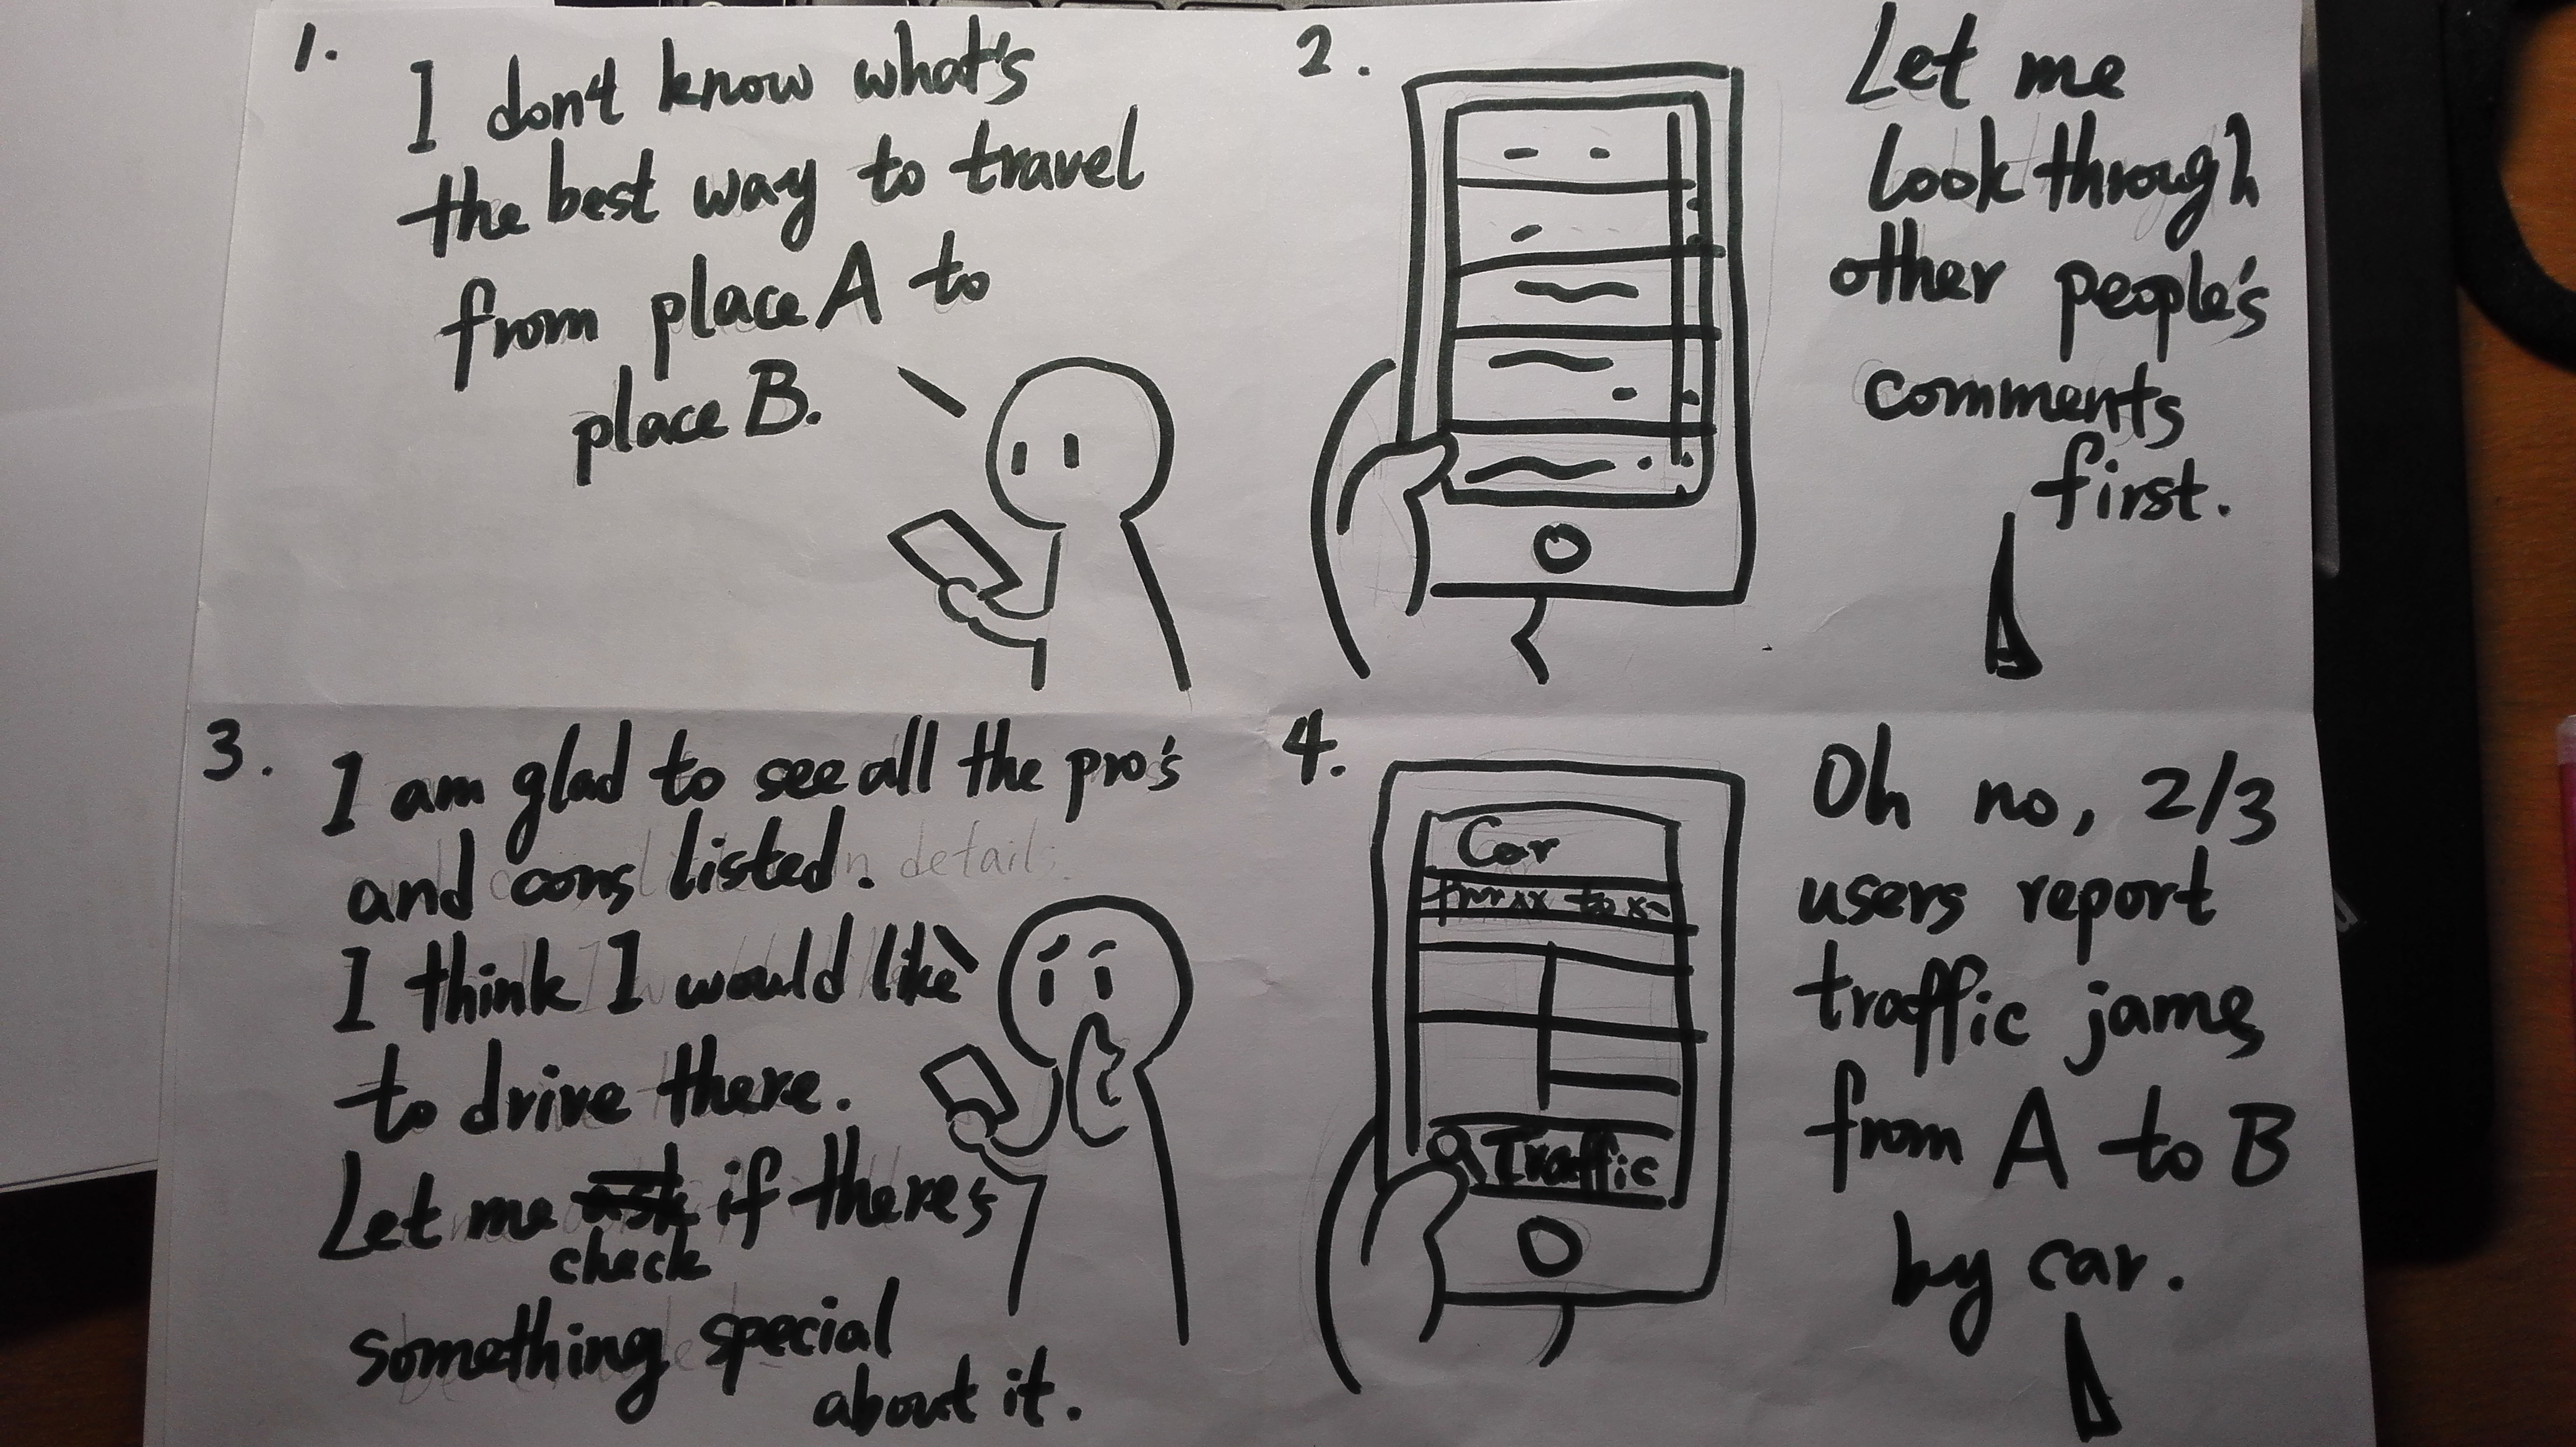 1.
I don't know what's
the best way to travel
from place A to
place B.
2.
Let me
look through
other people's
comments
first.
3.
I am glad to see all the pro's
and cons listed.
I think I would like
to drive there.
Let me ask if there's
check
something special
about it.
4.
Car
Traffic
Oh no, 2/3
users report
traffic jams
from A to B
by car.